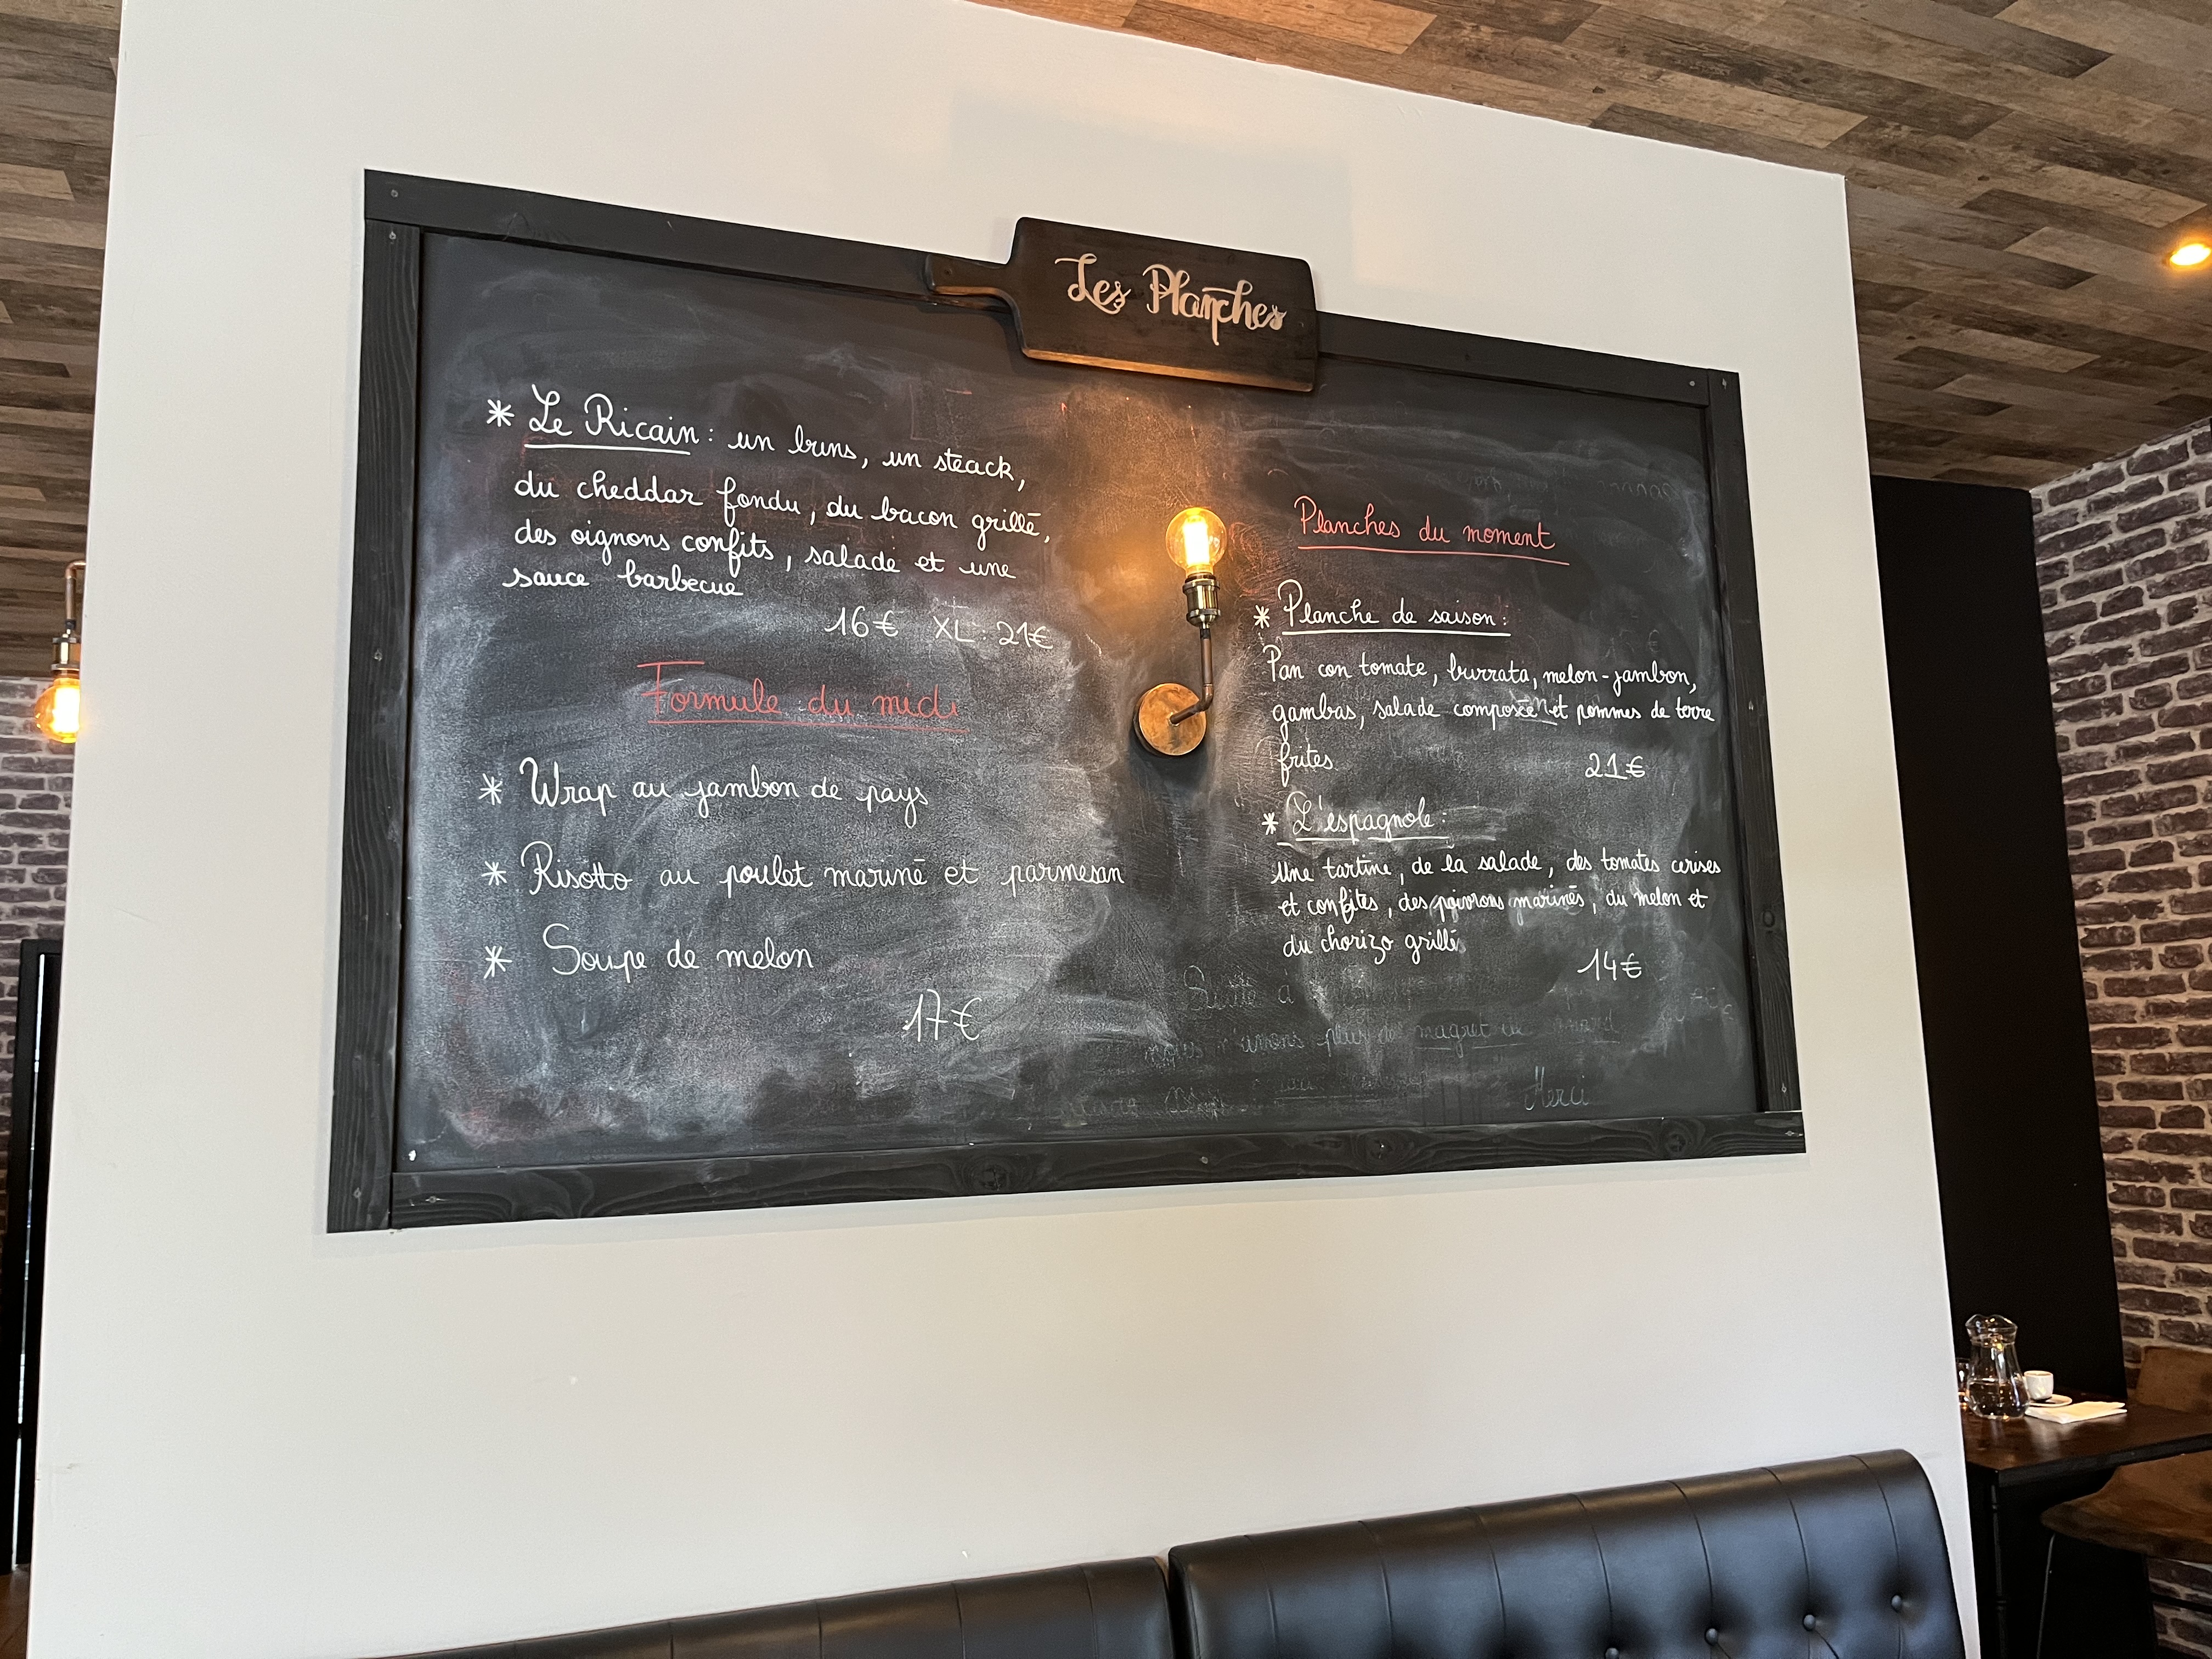 Les Planches
* Le Ricain : un buns, un steack,
du cheddar fondu, du bacon grillé,
des oignons confits, salade et une
sauce barbecue
16€ XL : 21€
Formule du midi
* Wrap au jambon de pays
* Risotto au poulet mariné et parmesan
* Soupe de melon
17€
Planches du moment
* Planche de saison :
Pan con tomate, burrata, melon-jambon,
gambas, salade composée et pommes de terre
frites
21€
* L'espagnole :
Une tartine, de la salade, des tomates cerises
et confites, des poivrons marinés, du melon et
du chorizo grillé
14€
Suite à
nous n'avons plus de magret de
Merci